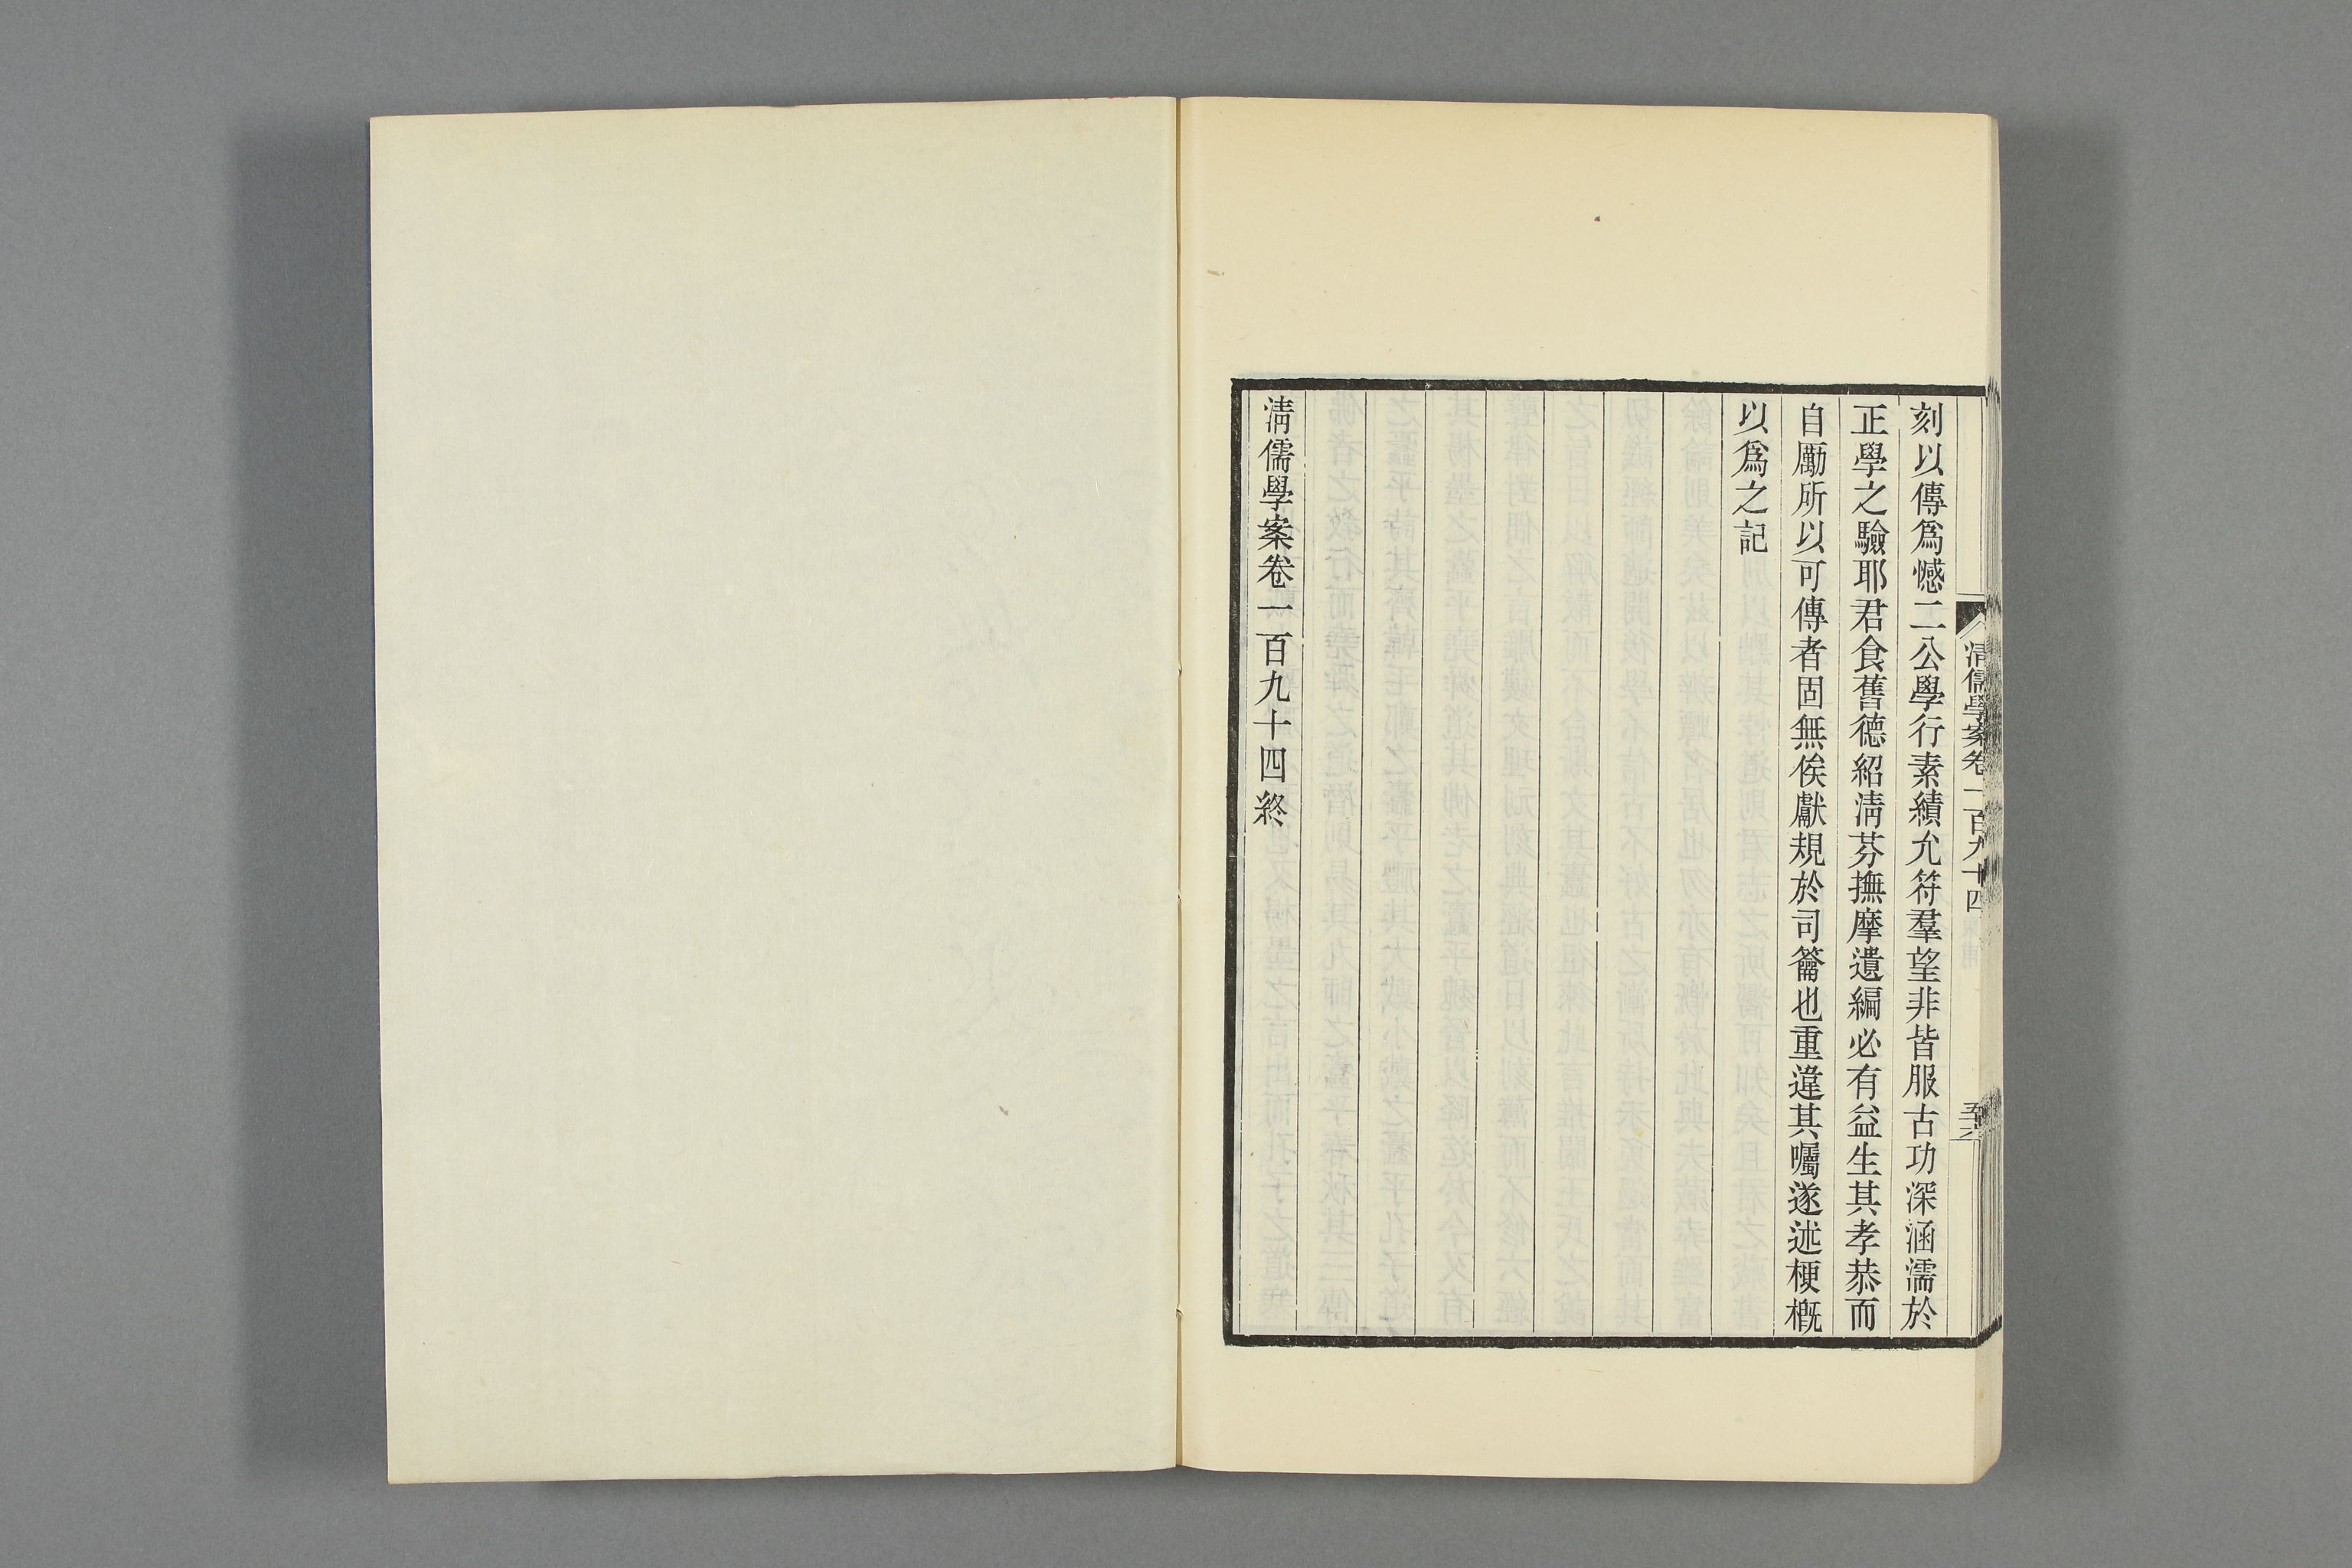 刻以傳爲憾二公學行素績允符羣望非皆服古功深涵濡於
正學之驗耶君食舊德紹淸芬撫摩遺編必有益生其孝恭而
自勵所以可傳者固無俟獻規於司籥也重違其囑遂述梗槪
以爲之記
淸儒學案卷一百九十四終
淸儒學案卷一百九十四